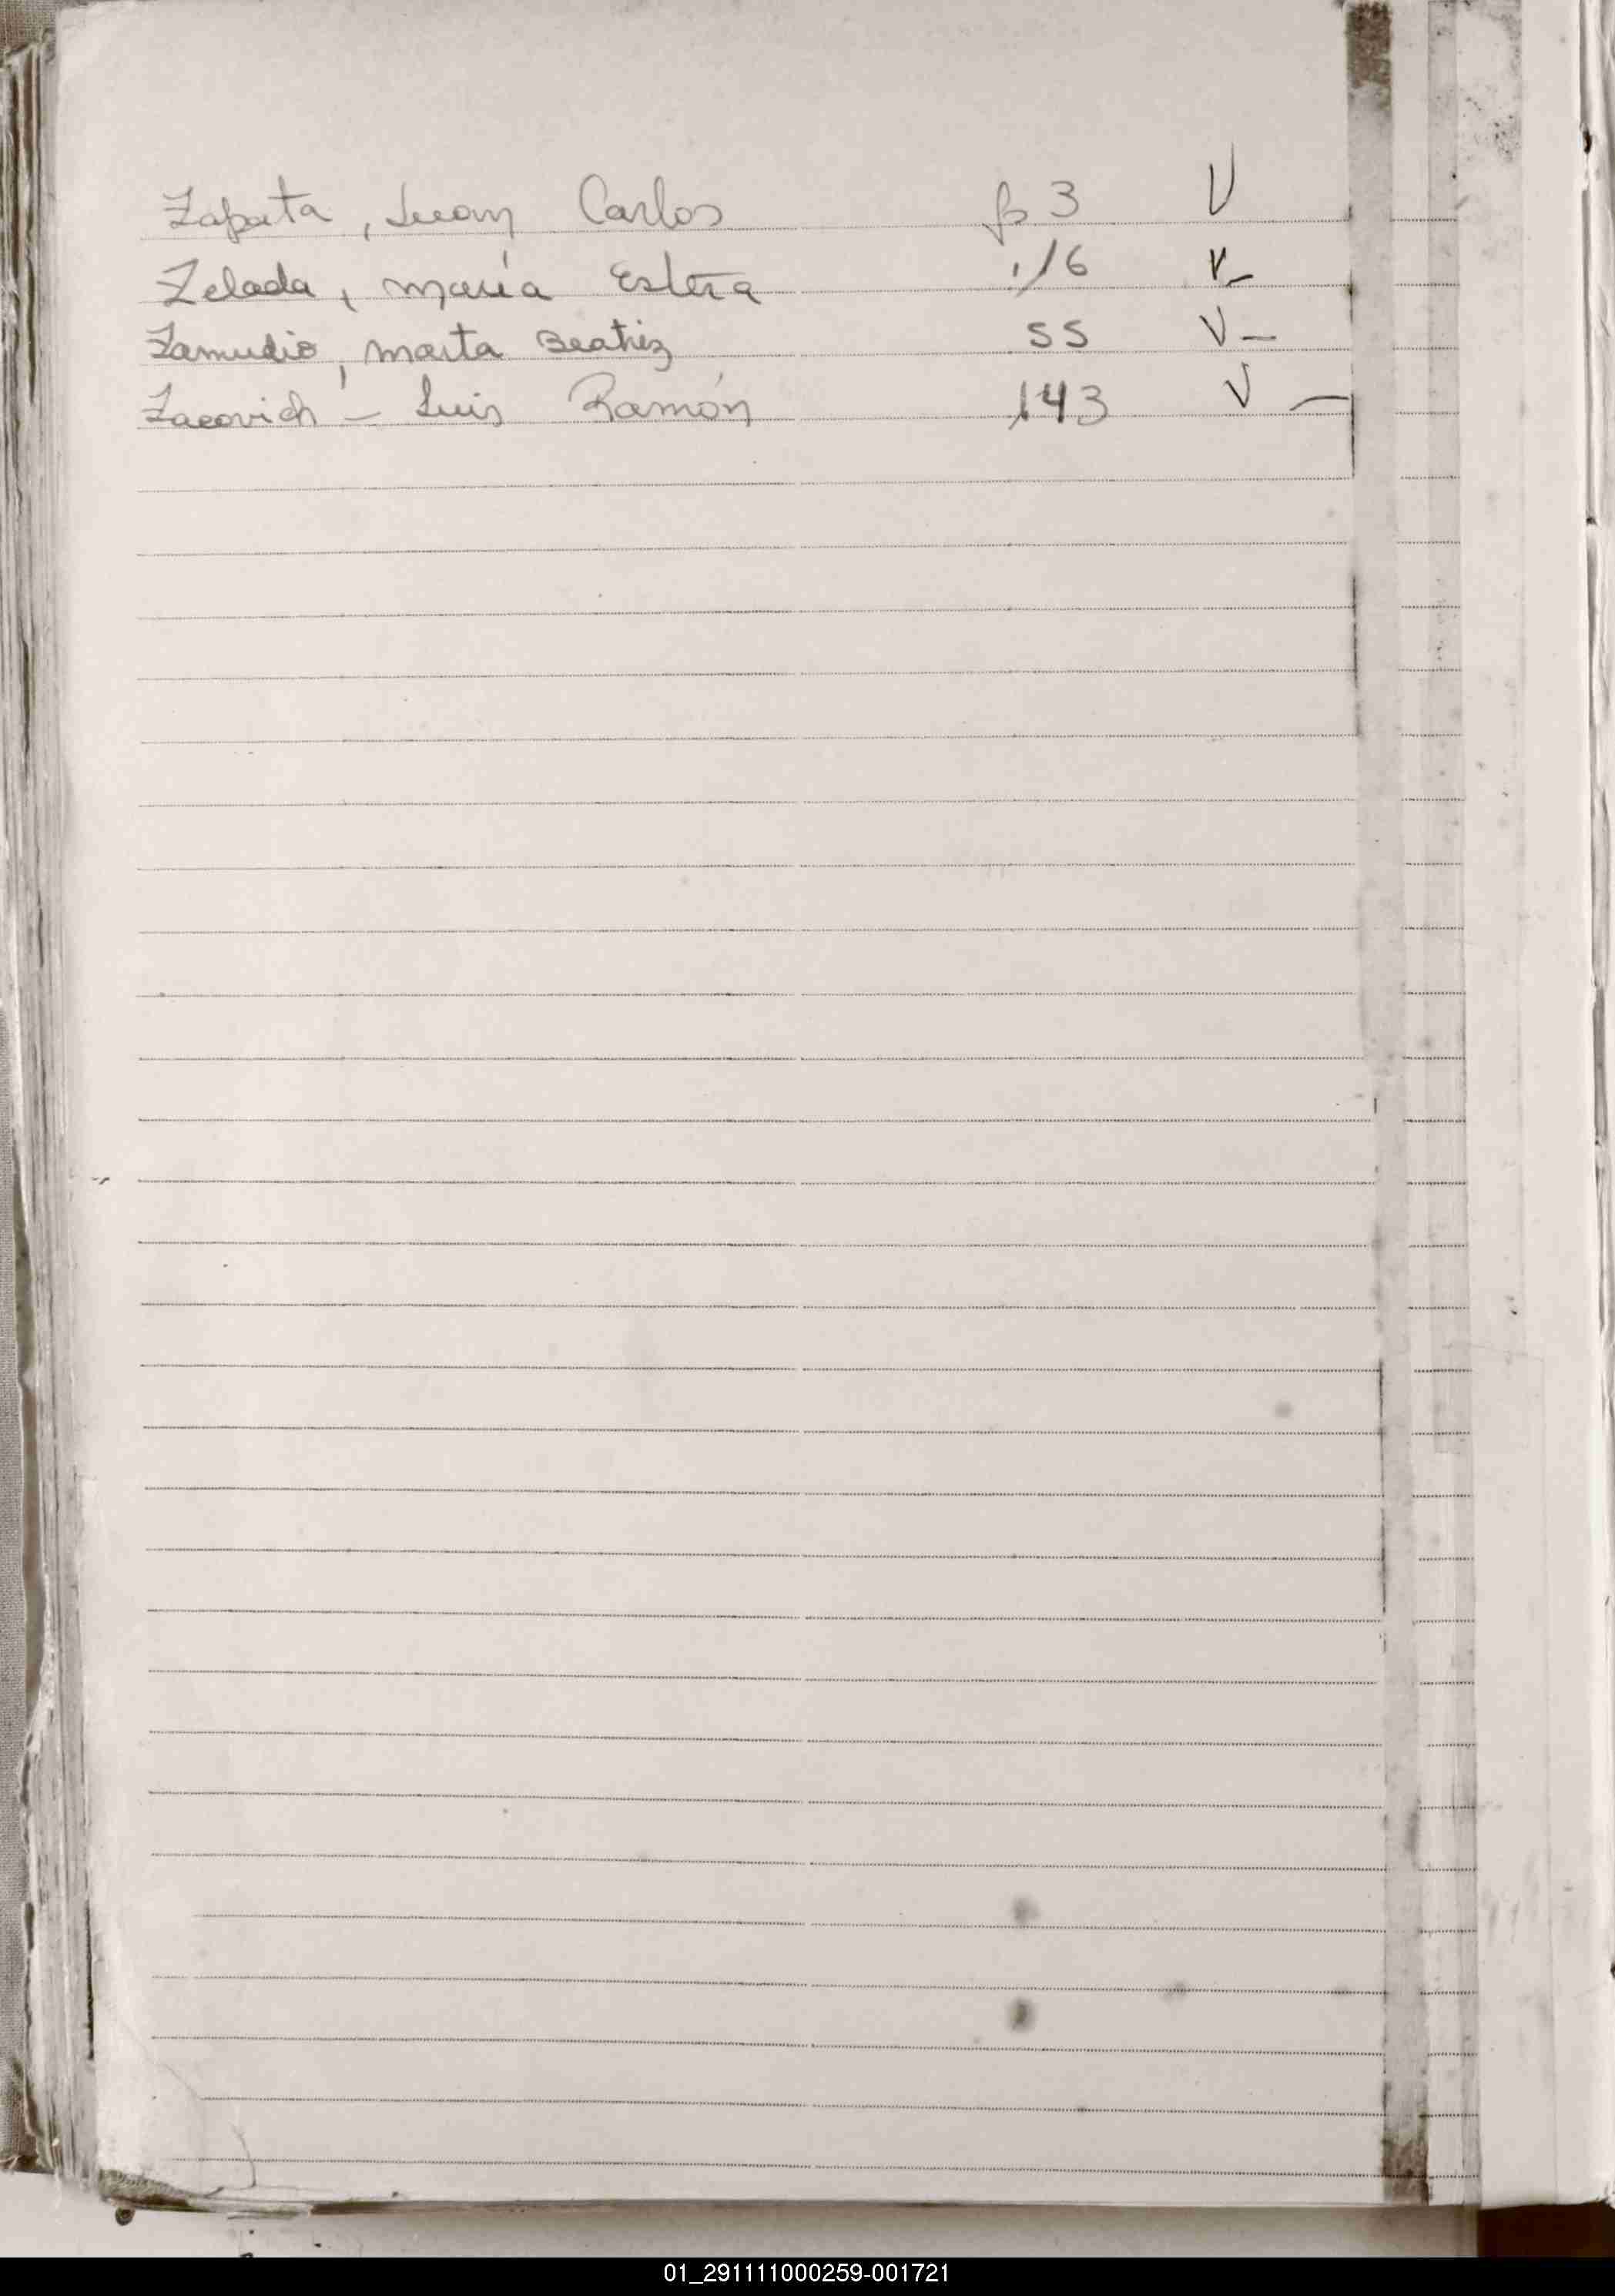 Zapata, Juan Carlos fs 3 V
Zelada, maría Estera 16 V-
Zamudio, marta Beatriz 55 V -
Zacovich - Luis Ramón 143 V -
01_291111000259-001721